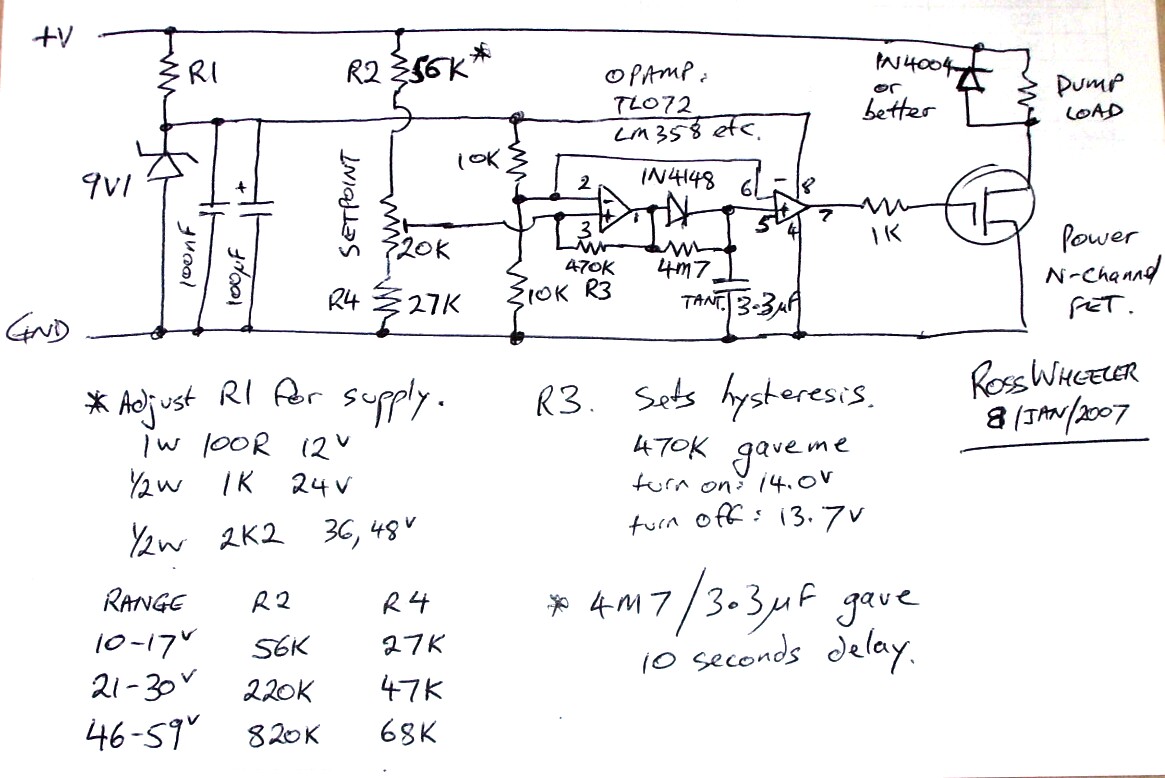 +V
R1
R2 56K*
OPAMP:
TL072
LM358 etc.
IN4004
or
better
DUMP
LOAD
9V1
+
100nF
100µF
SETPOINT
20K
R4 27K
10K
10K
2
-
+
3
1
IN4148
470K
R3
4M7
TANT. 3.3µF
6
-
8
5
+
4
7
1K
Power
N-Channel
FET.
GND
* Adjust R1 for supply.
1W 100R 12V
1/2W 1K 24V
1/2W 2K2 36, 48V
R3. Sets hysteresis.
470K gave me
turn on: 14.0V
turn off: 13.7V
ROSS WHEELER
8/JAN/2007
RANGE R2 R4
10-17V 56K 27K
21-30V 220K 47K
46-59V 820K 68K
* 4M7/3.3µF gave
10 seconds delay.